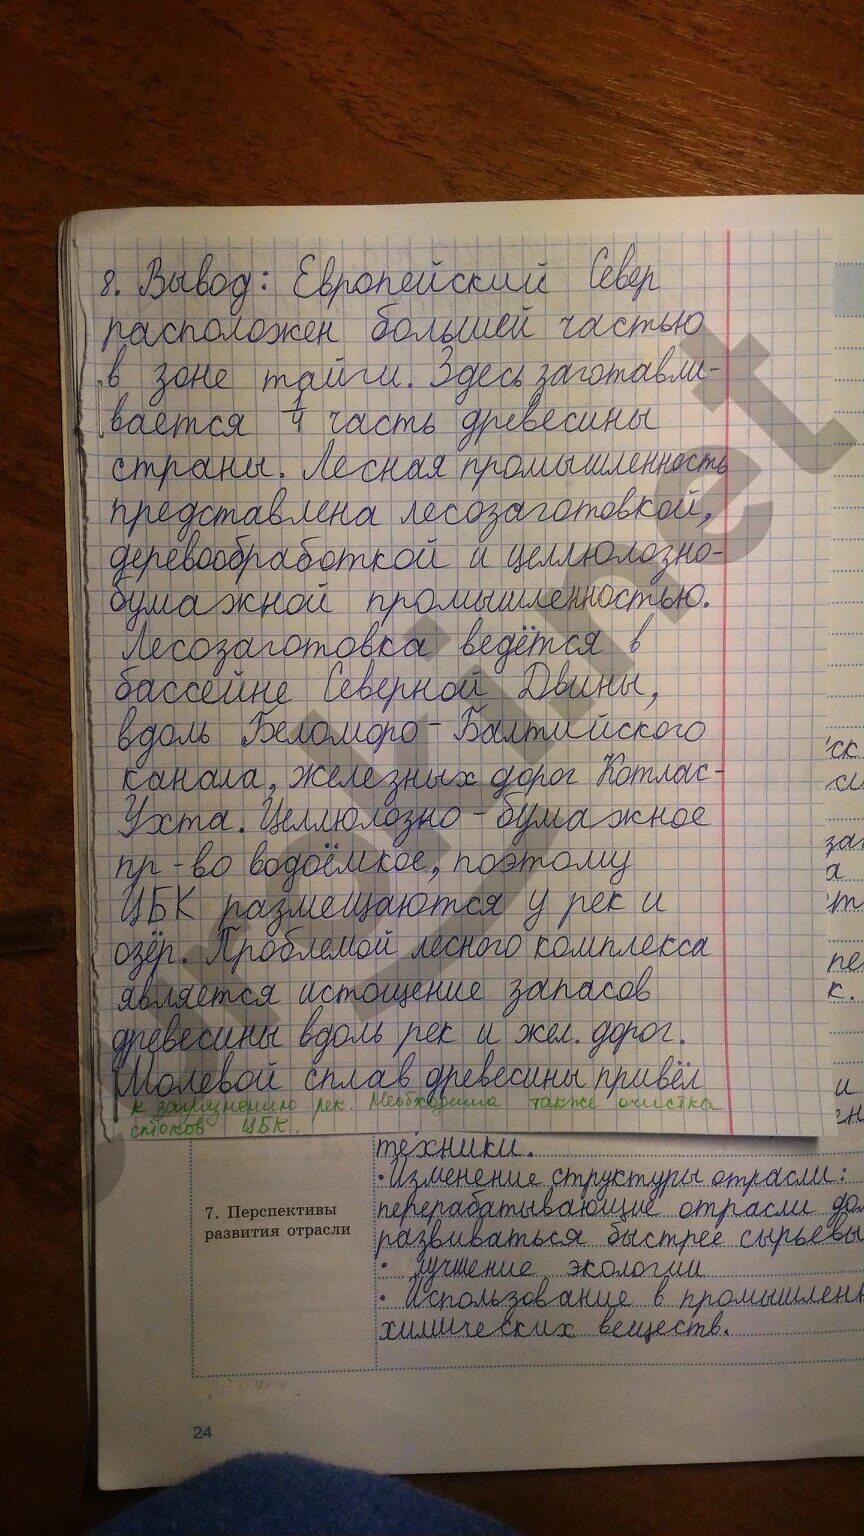 8. Вывод: Европейский Север
расположен большей частью
в зоне тайги. Здесь заготавли-
вается 1/4 часть древесины
страны. Лесная промышленность
представлена лесозаготовкой,
деревообработкой и целлюлозно-
бумажной промышленностью.
Лесозаготовка ведётся в
бассейне Северной Двины,
вдоль Беломоро-Балтийского
канала, железных дорог Котлас-
Ухта. Целлюлозно-бумажное
пр-во водоёмкое, поэтому
ЦБК размещаются у рек и
озёр. Проблемой лесного комплекса
является истощение запасов
древесины вдоль рек и жел. дорог.
Молевой сплав древесины привёл
к загрязнению рек. Необходима также очистка
стоков ЦБК.
техники.
7. Перспективы
развития отрасли
• Изменение структуры отрасли:
перерабатывающие отрасли
развиваться быстрее
• улучшение экологии
• Использование в
химических веществ.
24